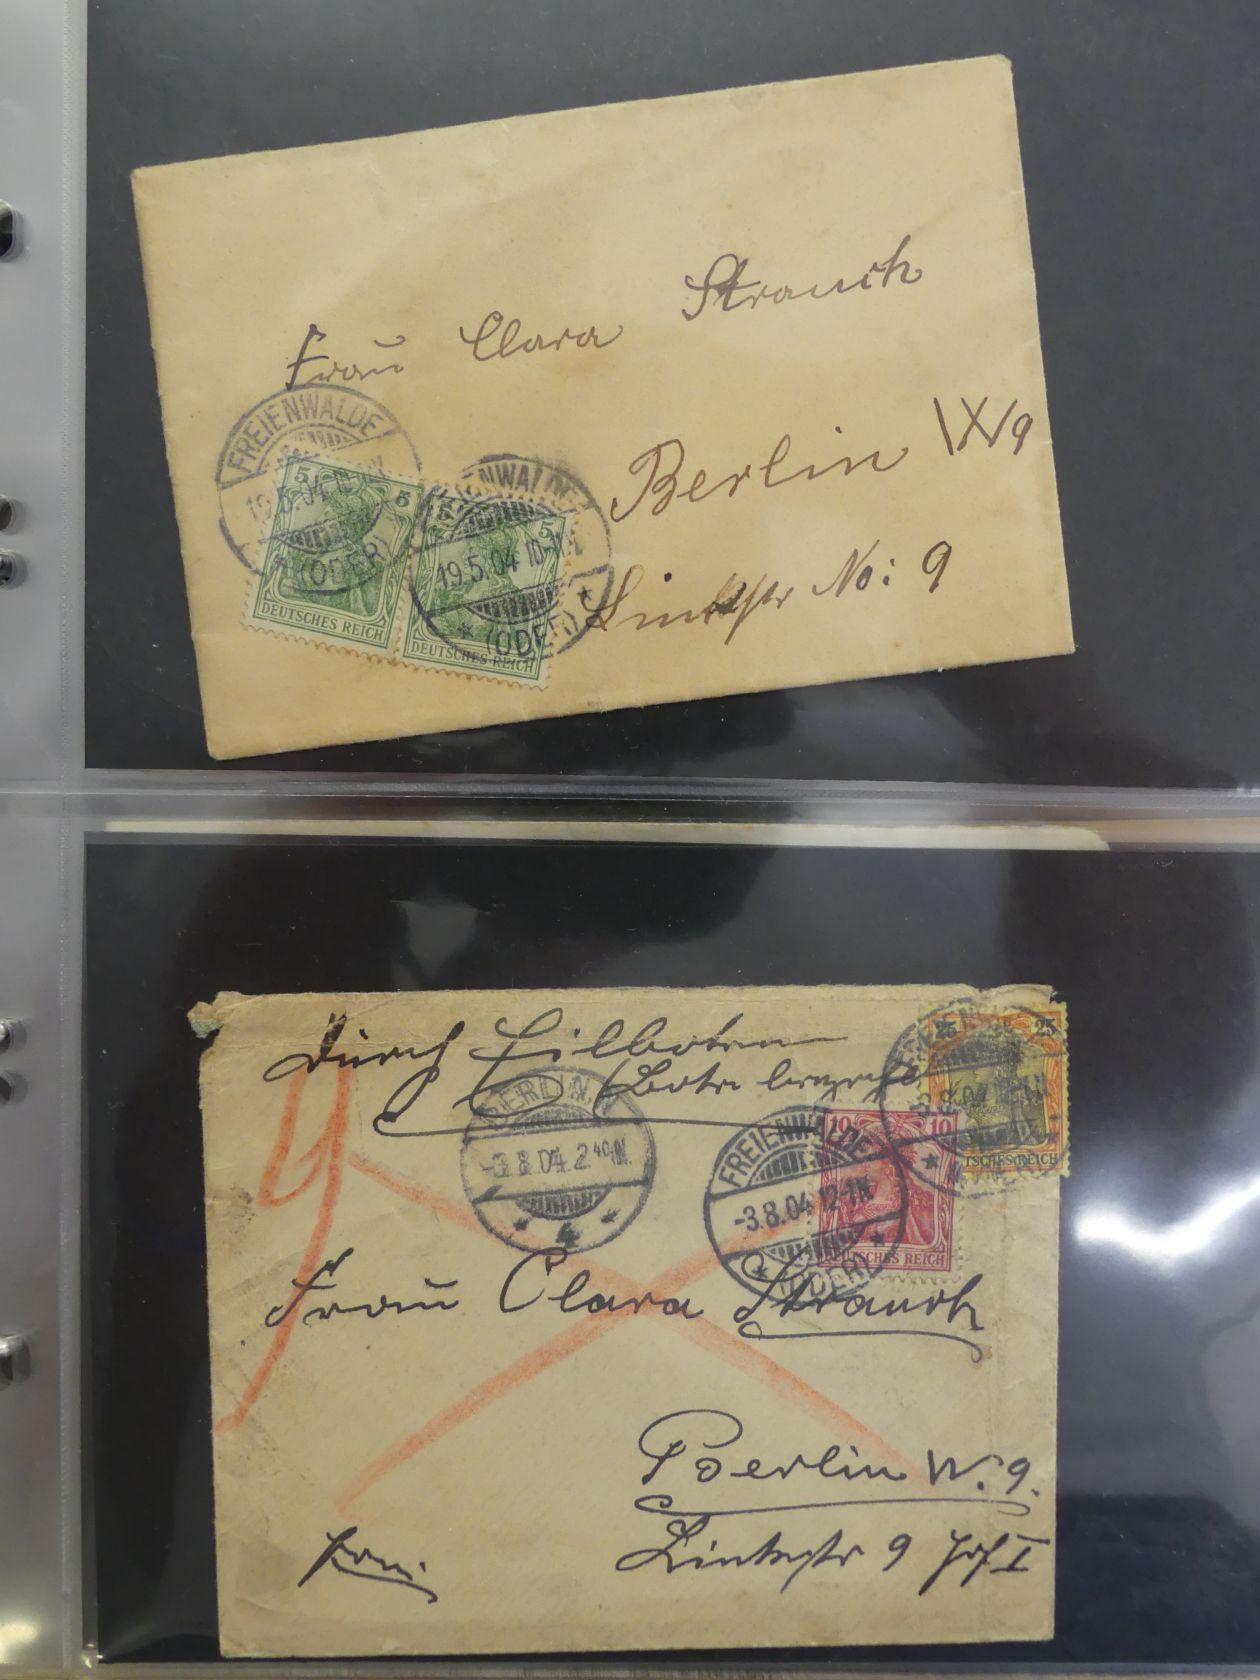 Frau Clara Strauch
Berlin W9
Linkstr No: 9
FREIENWALDE
19.5.04 10-11
(ODER)
FREIENWALDE
19.5.04 10-11
* (ODER) *
5 5
DEUTSCHES REICH
5 5
DEUTSCHES REICH
Durch Eilboten
(Bote bezahlt)
BERLIN
-3.8.04.2 40 N.
* 4 *
FREIENWALDE
-3.8.04 12-1N
* (ODER) *
10 10
DEUTSCHES REICH
25 25
DEUTSCHES REICH
Frau Clara Strauch
Berlin W. 9.
Linkstr 9 Hof I